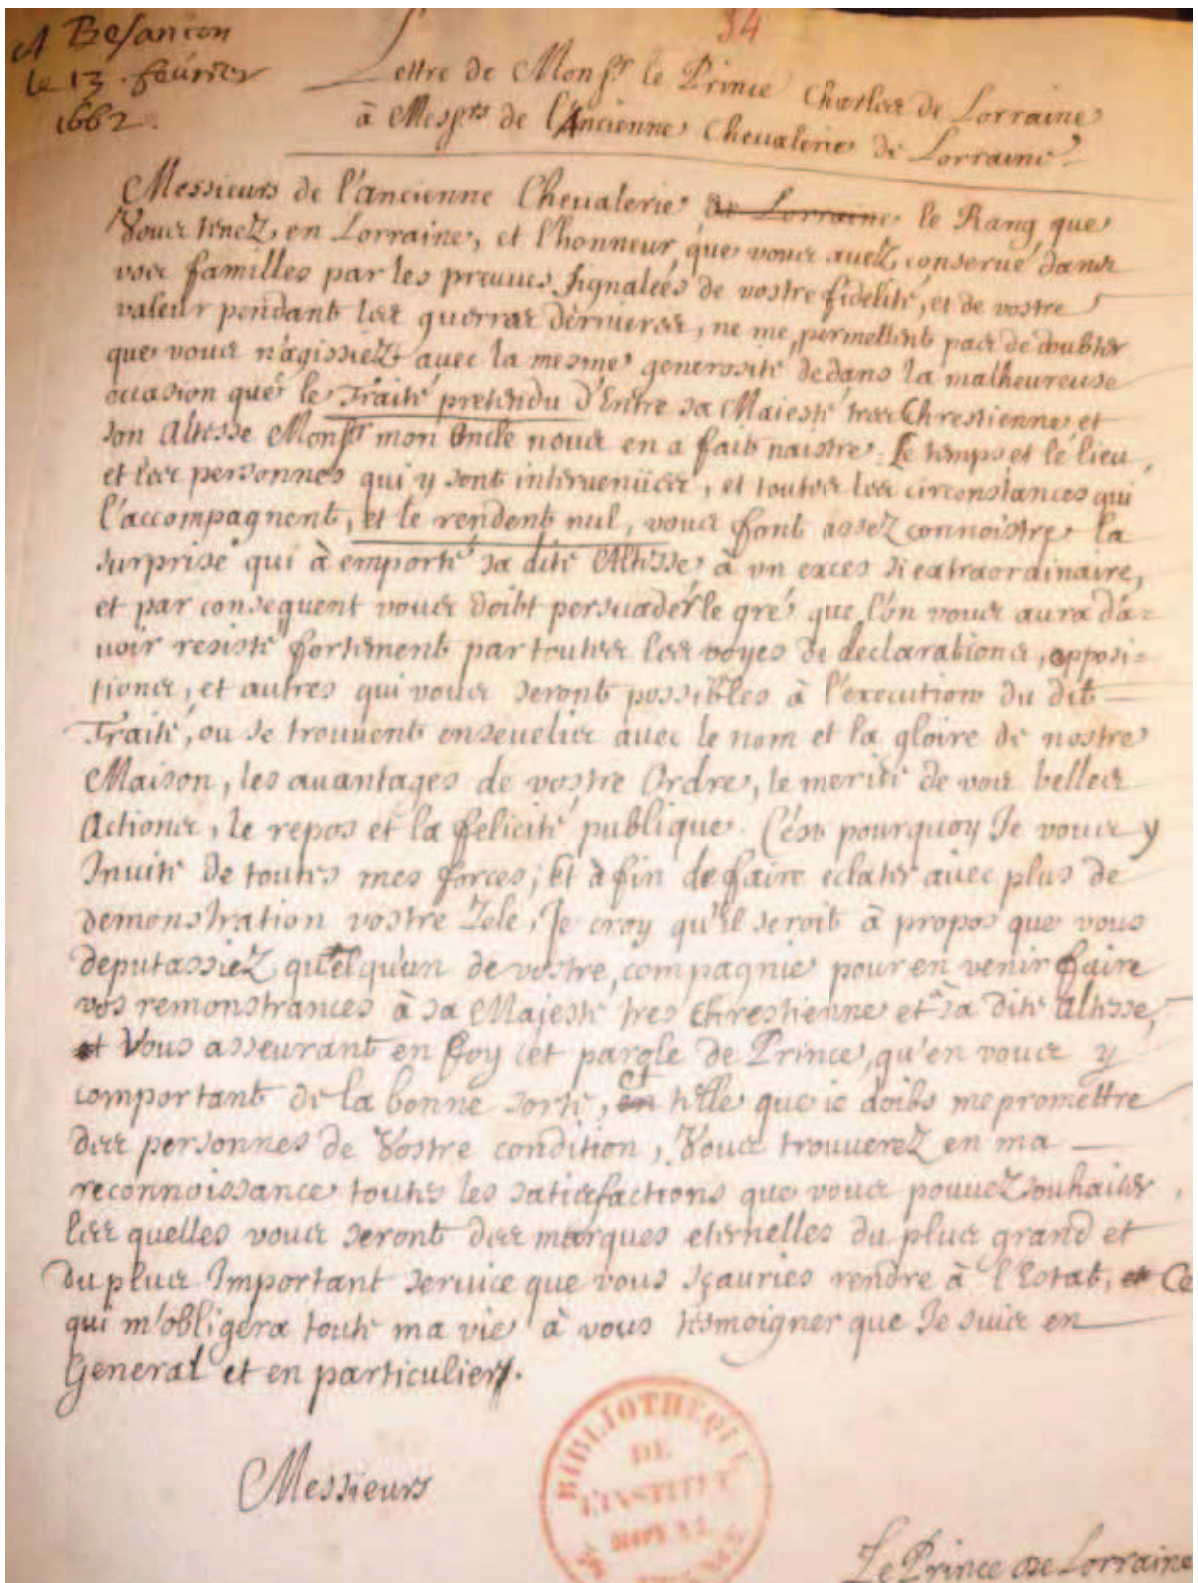 34
A Besançon
le 13. feúvrier
1662.
Lettre de Monsr le Prince Charles de Lorraine
à Messrs de l'Ancienne Cheualerie de Lorraine
Messieurs de l'ancienne Cheualerie de Lorraine le Rang que
Vous tenez en Lorraine, et l'honneur que vous auez conserué dans
vos familles par les preuues signalées de vostre fidelité, et de vostre
valeur pendant les guerres dernieres, ne me permettent pas de doubter
que vous n'agissiez auec la mesme generosité dedans la malheureuse
occasion que le Traité pretendu d'Entre sa Maiesté tres Chrestienne et
son Altesse Monsr mon Oncle nous en a fait naistre. Le temps et le lieu,
et les personnes qui y sont interuenües, et toutes les circonstances qui
l'accompagnent, et le rendent nul, vous font assez connoistre la
surprise qui à emporté sa dite Altesse à vn exces si extraordinaire,
et par consequent vous doibt persuader le gré que l'on vous aura d'a=
uoir resisté fortement par toutes les voyes de declarations, opposi=
tions, et autres qui vous seront possibles à l'execution du dit
Traité, ou se trouuent enseuelis auec le nom et la gloire de nostre
Maison, les auantages de vostre Ordre, le merite de vos belles
Actions, le repos et la felicité publique. C'est pourquoy Je vous y
Inuite de toutes mes forces; Et à fin de faire eclater auec plus de
demonstration vostre Zele, Je croy qu'il seroit à propos que vous
deputassiez quelqu'un de vostre compagnie pour en venir faire
vos remonstrances à sa Majesté tres Chrestienne et à sa dite Altesse,
et Vous asseurant en foy et parole de Prince, qu'en vous y
comportant de la bonne sorte, en et telle que ie doibs me promettre
des personnes de Vostre condition, Vous trouuerez en ma
reconnoissance toutes les satisfactions que vous pouuez souhaiter,
les quelles vous seront des marques eternelles du plus grand et
du plus Important seruice que vous sçauries rendre à l'Estat, et Ce
qui m'obligera toute ma vie à vous tesmoigner que Je suis en
General et en particulier.
Messieurs
BIBLIOTHÈQUE
DE
L'INSTITUT
Le Prince de Lorraine